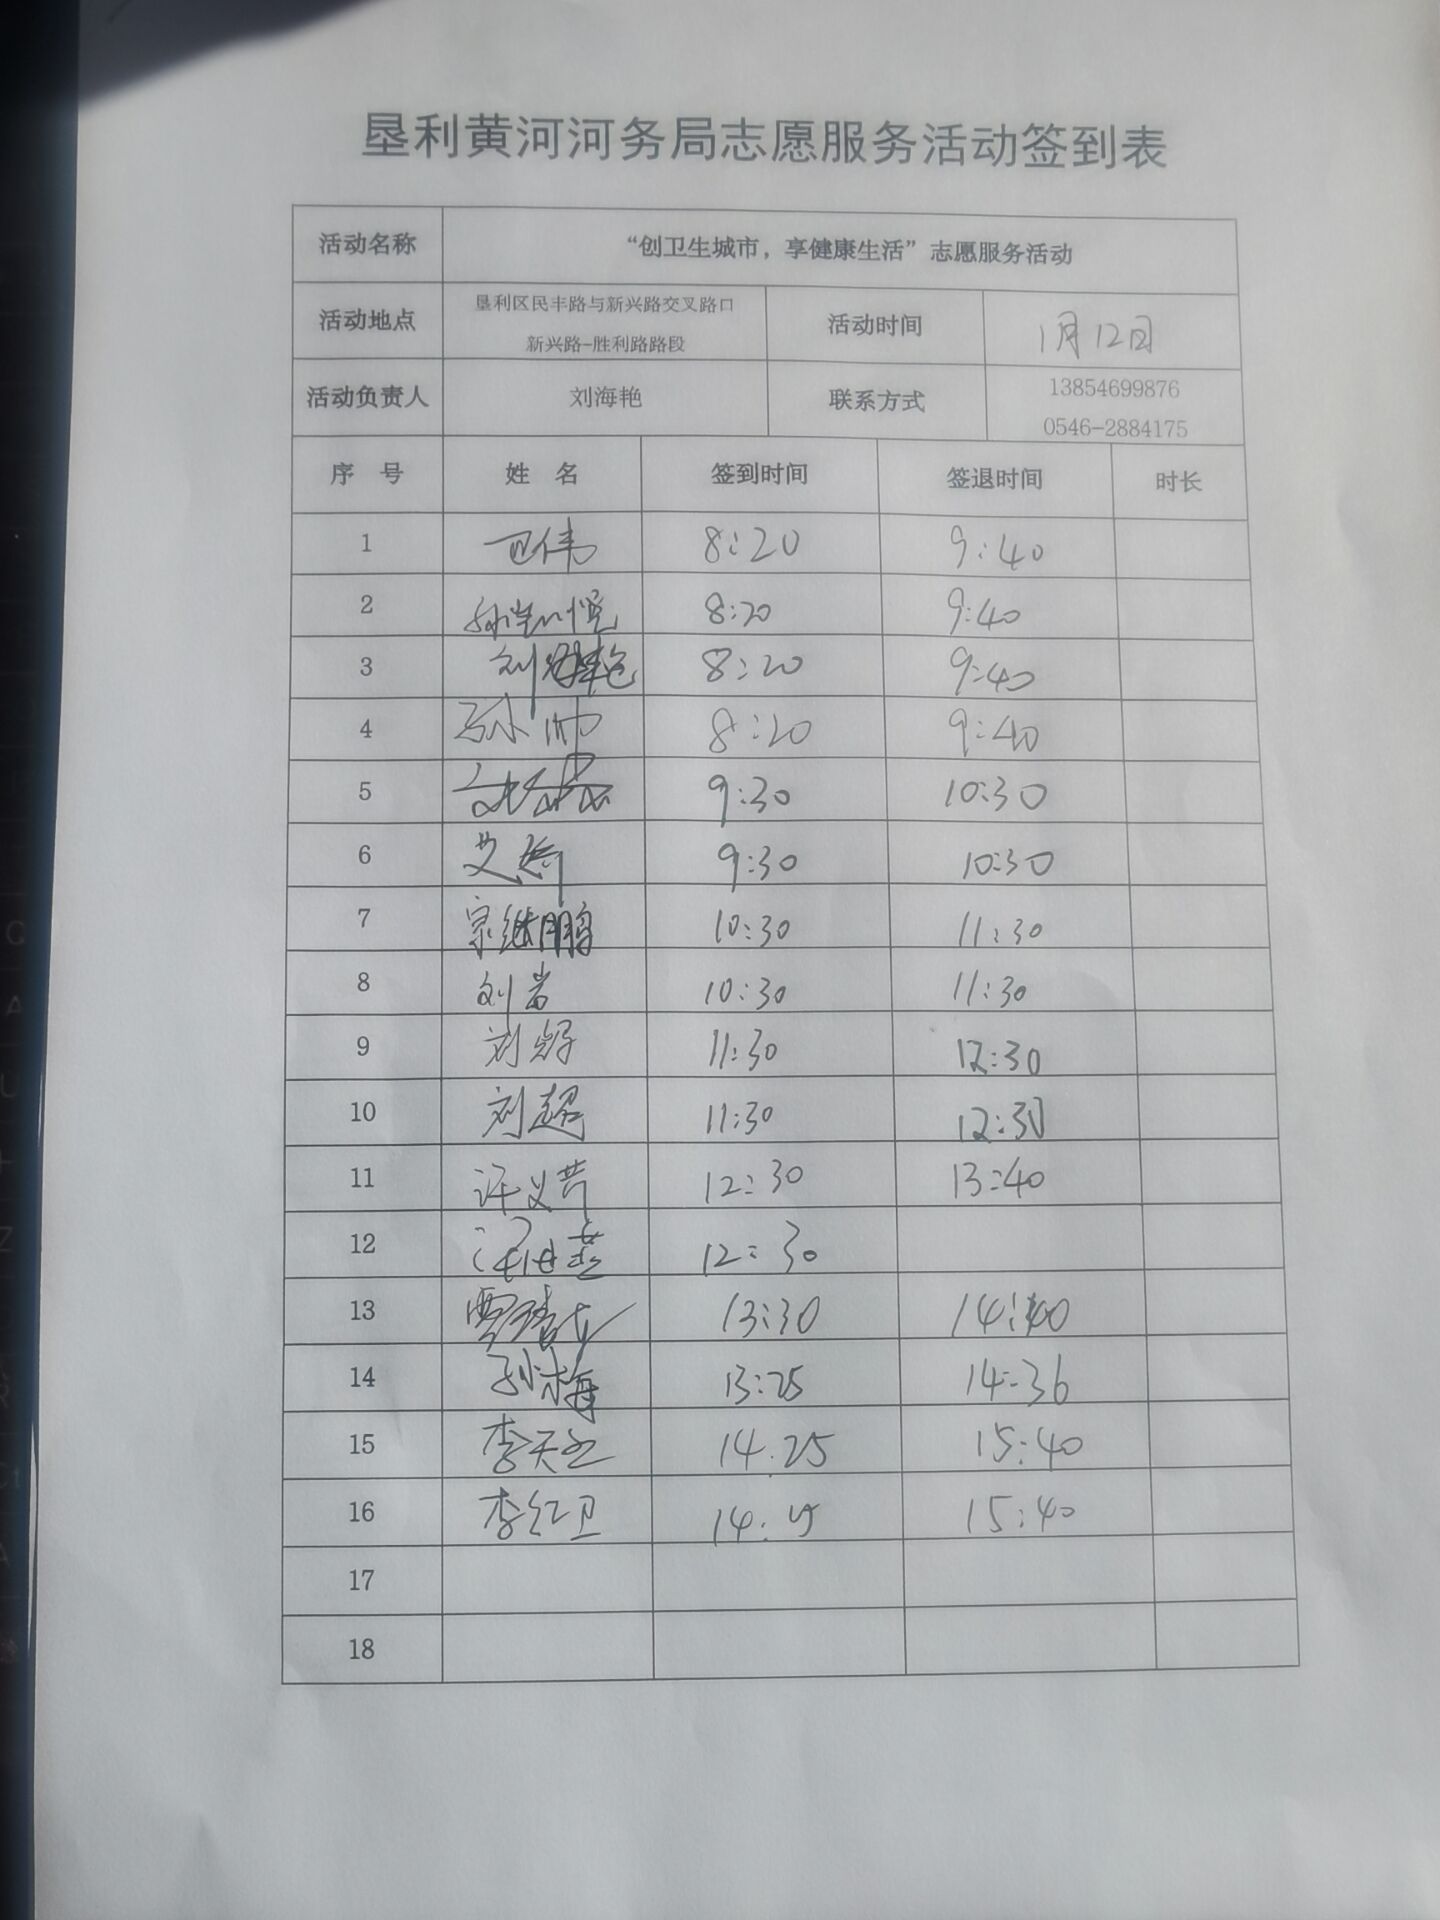 垦利黄河河务局志愿服务活动签到表
活动名称 “创卫生城市，享健康生活”志愿服务活动
活动地点 垦利区民丰路与新兴路交叉路口 新兴路-胜利路路段 活动时间 1月12日
活动负责人 刘海艳 联系方式 13854699876 0546-2884175
序 号 姓 名 签到时间 签退时间 时长
1 8:20 9:40
2 8:20 9:40
3 刘海艳 8:20 9:40
4 孙帅 8:20 9:40
5 9:30 10:30
6 9:30 10:30
7 宗继鹏 10:30 11:30
8 刘岩 10:30 11:30
9 刘 11:30 12:30
10 刘超 11:30 12:30
11 许义芹 12:30 13:40
12 12:30
13 13:30 14:40
14 孙梅 13:25 14:36
15 李天 14.25 15:40
16 李红卫 14: 15:40
17
18